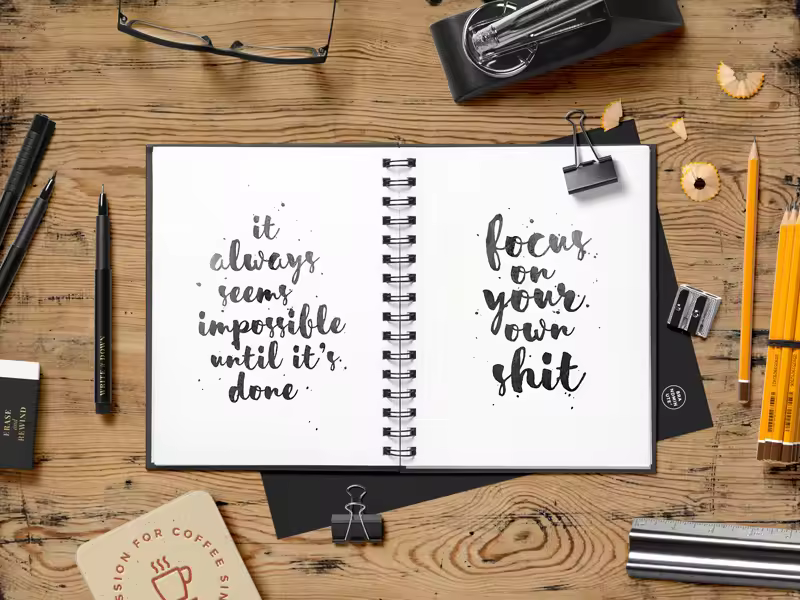 it
always
seems
impossible
until it's
done
focus
on
your
own
shit
WRITE it DOWN
ERASE
and
REWIND
SSION FOR COFFEE SIN